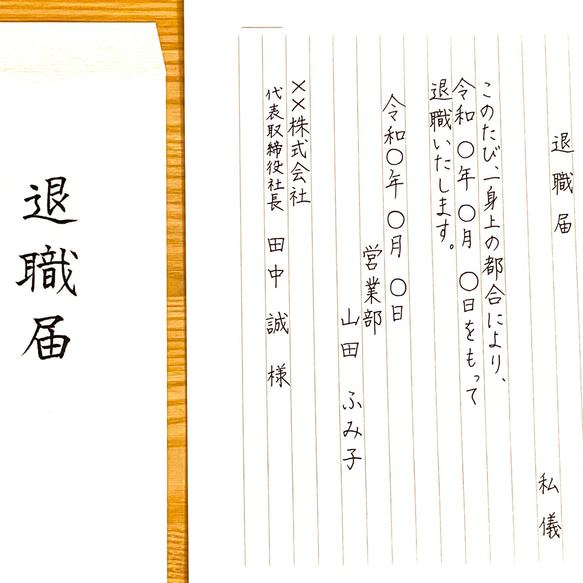 退職届
退職届
私儀
このたび、一身上の都合により、
令和 〇年 〇月 〇日をもって
退職いたします。
令和〇年 〇月 〇日
営業部
山田 ふみ子
××株式会社
代表取締役社長 田中 誠 様